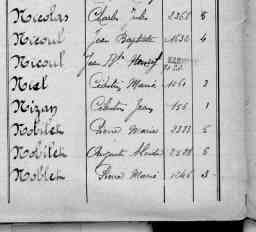 Nicolas Charles Jules 2368 5
Nicoul Jean Baptiste 1630 4
Nicoul Jean
Niel Célestin Marie 1061 2
Nizan Célestin Jean 156 1
Nobilet Pierre Marie 2333 5
Nobilet Auguste 2528 5
Noblet Pierre Marie 1246 3